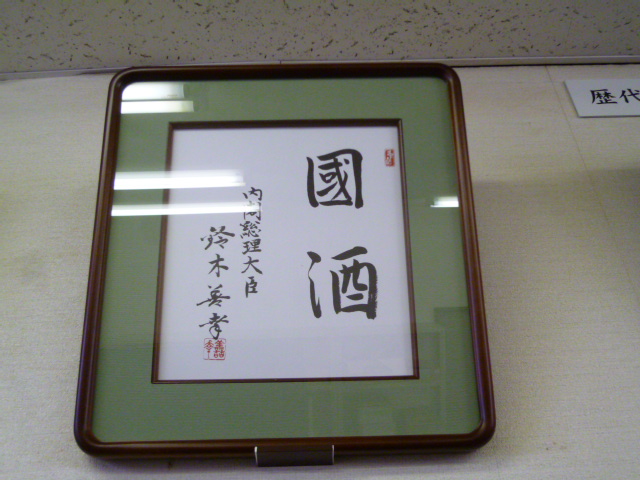 國酒
内閣総理大臣
鈴木善幸
歴代